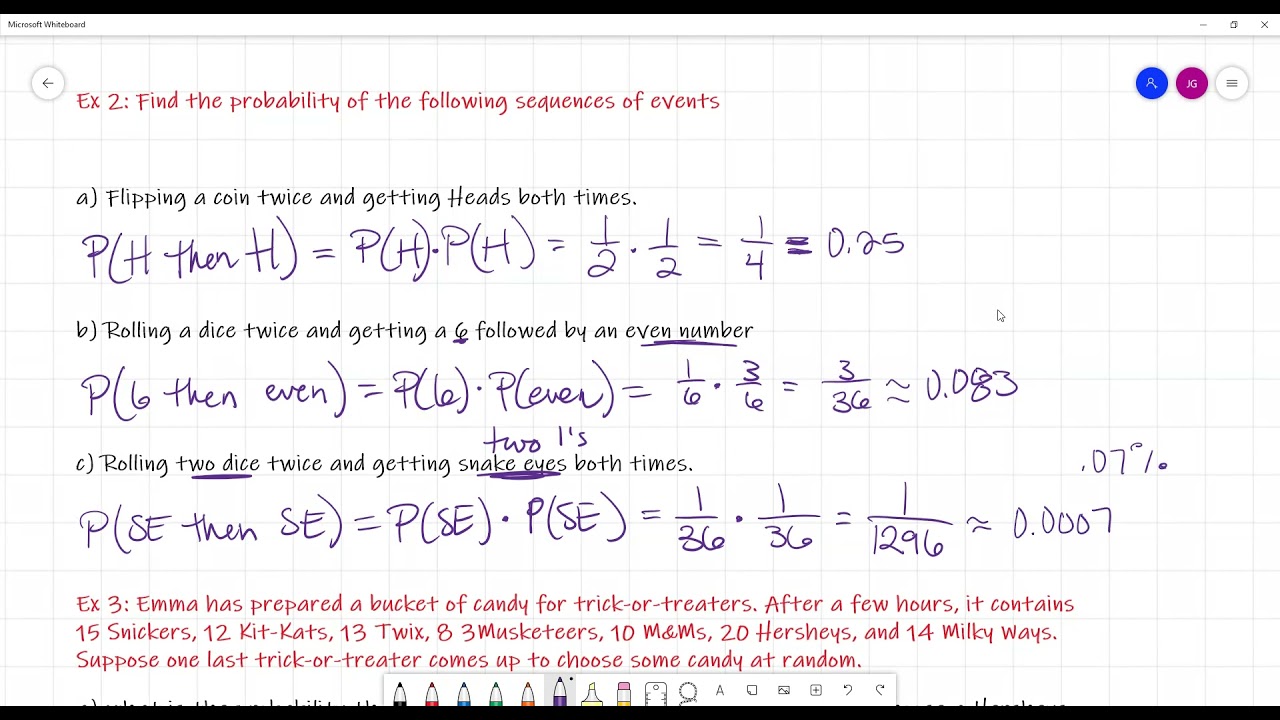 Microsoft Whiteboard
JG
Ex 2: Find the probability of the following sequences of events
a) Flipping a coin twice and getting Heads both times.
P(H then H) = P(H)·P(H) = 1/2 · 1/2 = 1/4 = 0.25
b) Rolling a dice twice and getting a 6 followed by an even number
P(6 then even) = P(6)·P(even) = 1/6 · 3/6 = 3/36 ≈ 0.083
two 1's
c) Rolling two dice twice and getting snake eyes both times.
.07%
P(SE then SE) = P(SE) · P(SE) = 1/36 · 1/36 = 1/1296 ≈ 0.0007
Ex 3: Emma has prepared a bucket of candy for trick-or-treaters. After a few hours, it contains
15 Snickers, 12 Kit-Kats, 13 Twix, 8 3Musketeers, 10 M&Ms, 20 Hersheys, and 14 Milky Ways.
Suppose one last trick-or-treater comes up to choose some candy at random.